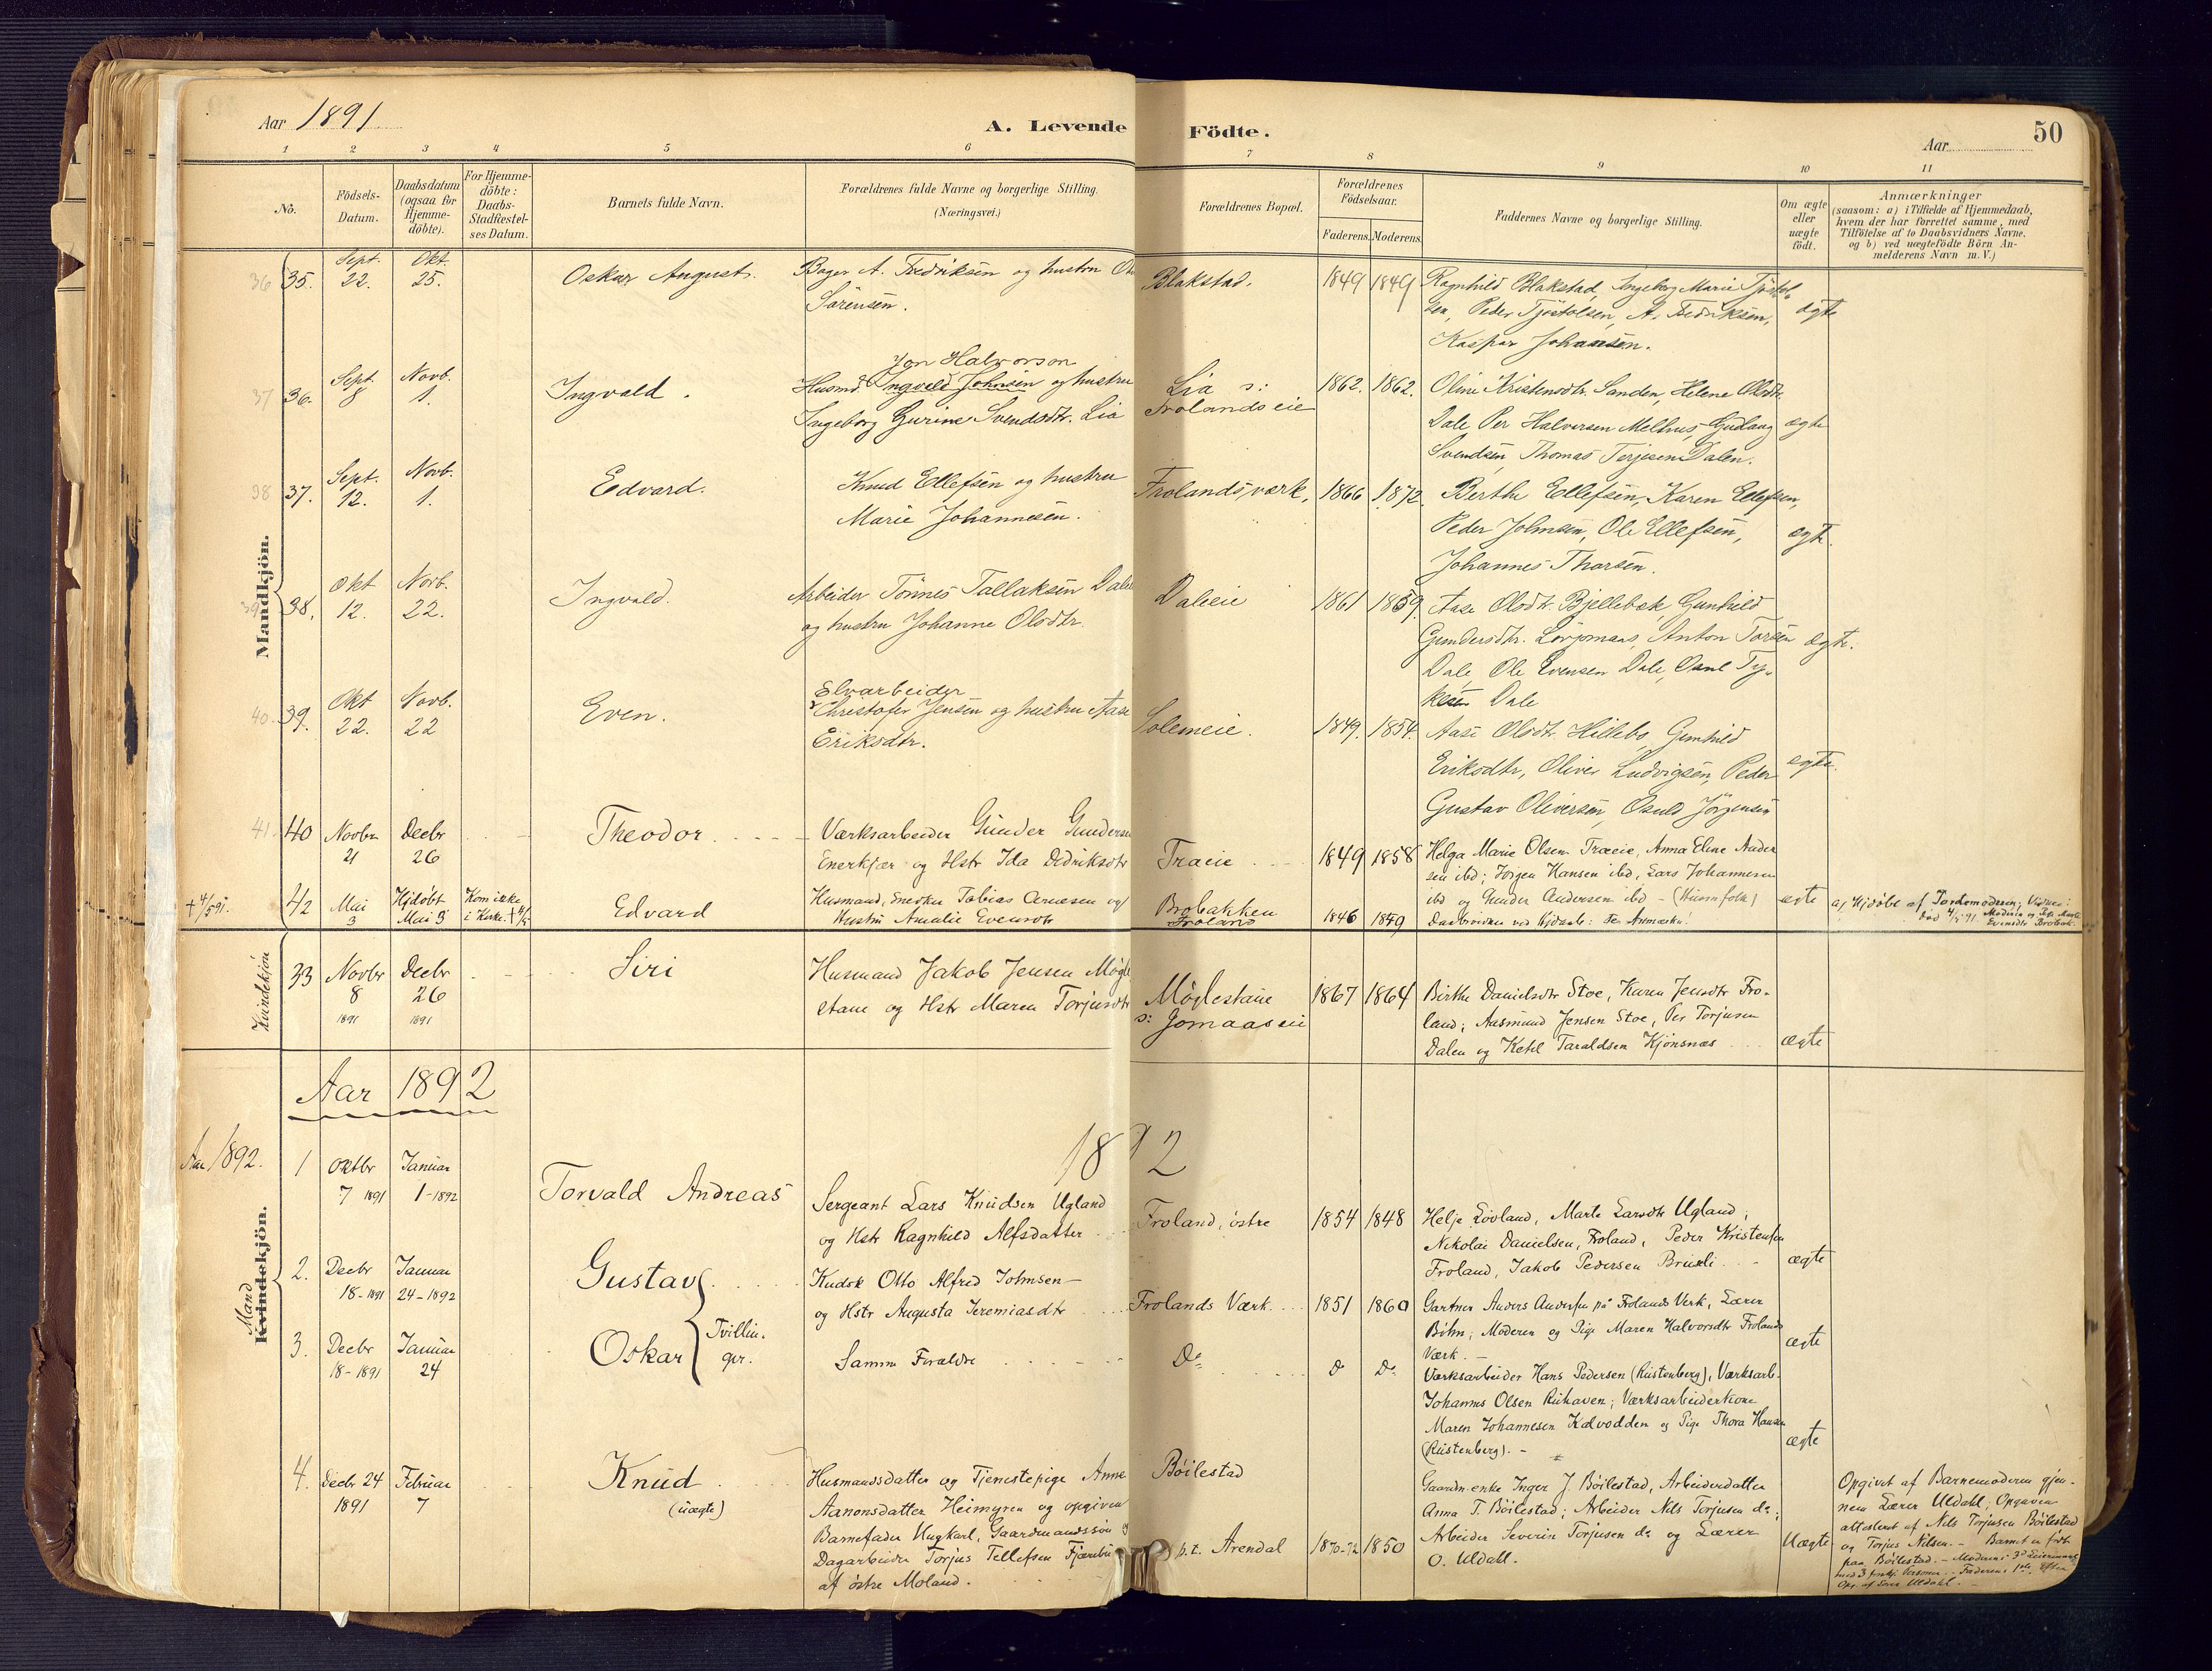 Aar 1891
A. Levende Födte.
Aar
50
1 2 3 4 5 6 7 8 9 10 11
No.
Födsels-
Datum.
Daabsdatum
(ogsaa for
Hjemme-
döbte).
For Hjemme-
döbte:
Daabs-
Stadfæstel-
ses Datum.
Barnets fulde Navn.
Forældrenes fulde Navne og borgerlige Stilling.
(Næringsvei.)
Forældrenes Bopæl.
Forældrenes
Födselsaar.
Faderens. Moderens.
Faddernes Navne og borgerlige Stilling.
Om ægte
eller
uægte
födt.
Anmærkninger
(saasom: a) i Tilfælde af Hjemmedaab,
hvem der har forrettet samme, med
Tilföielse af to Daabsvidners Navne,
og b) ved uægtefödte Börn An-
melderens Navn m. V.)
Mandkjön.
36 35.
Sept. 22.
Okt. 25.
Oskar August.
Bager A. Fredriksen og hustru
Sörensen.
Blakstad.
1849 1849
Ragnhild Blakstad, Ingeborg Marie Tjöstol-
sen, Peder Tjöstolsen, A. Fredriksen,
Kaspar Johansen.
ægte
37 36.
Sept. 8
Novb. 1.
Ingvald.
Jon Halvorson
Husmd. Ingvald Johnsen og hustru
Ingeborg Gurine Svendsdtr. Lia
Lia s:
Frolandseie
1862. 1862.
Oline Kristensdtr. Sanden, Helene Olsdtr.
Dale, Per Halvorsen Melhus, Gudang
Svendsen, Thomas Terjesen Dalen.
ægte
38 37.
Sept. 12.
Novb. 1.
Edvard.
Knud Ellefsen og hustru
Marie Johannesen.
Frolandsværk.
1866 1872.
Berthe Ellefsen, Karen Ellefsen,
Peder Johnsen, Ole Ellefsen,
Johannes Thorsen.
ægte.
39 38.
Okt 12.
Novb. 22.
Ingvald.
Arbeider Tönnes Tallaksen Dale
og hustru Johanne Olsdtr.
Daleeie
1861 1859.
Aase Olsdtr. Bjellebæk, Gunhild
Gundersdtr. Lövjomaas, Anton Tarsen
Dale, Ole Evensen Dale, Osul Ty-
kesen Dale
ægte.
40. 39.
Okt 22.
Novb. 22
Even.
Elvarbeider
Christofer Jensen og hustru Aase
Eriksdtr.
Solemeie.
1849. 1854.
Aase Olsdtr Hillebo, Gunhild
Eriksdtr, Oliver Ludvigsen, Peder
Gustav Oliversen, Osuld Jörgensen
ægte.
41. 40
Novbr 21
Decbr 26
Theodor.
Værksarbeider Gunder Gunders
Enerkjær og Hstr Ida Didriksdtr
Traeie
1849 1858
Helga Marie Olsen Træeie, Anna Eline Ander
sen ibd; Jörgen Hansen ibd, Lars Johannesen
ibd og Gunder Andersen ibd – (Huusmfolk)
ægte
† 4/5 91.
42
Mai 3
Hjdöbt
Mai 3
Kom ikke
i Kirke. † 4/5
Edvard
Husmand, Snedker Tobias Arnesen og
Hustru Amalie Evensdtr
Brobakken
Froland
1846 1849
Daabsvidner ved Hjdaab: Se Anmærkn!
a) Hjdöbt af Jordemoderen; Vidner:
Död 4/5 91. Moderen og Marte
Evensdtr Brobak.
Kvindekjön
33
Novbr 8 1891
Decbr 26 1891
Siri
Husmand Jakob Jensen Mögle
stane og Hstr Maren Torjusdtr
Möglestane
s: Jomaaseie
1867 1864
Birthe Danielsdtr Stoe, Karen Jensdtr Fro-
land; Aasmund Jensen Stoe, Per Torjusen
Dalen og Ketil Taraldsen Kjönsnæs
ægte
Aar 1892
1892
Aar 1892.
Mand
Kvindekjön.
1
Oktbr 7 1891
Januar 1 - 1892
Torvald Andreas
Sergeant Lars Knudsen Ugland
og Hstr Ragnhild Alfsdatter
Froland, östre
1854 1848
Helje Lövland, Marte Larsdtr Ugland;
Nikolai Danielsen, Froland, Peder Kristensen
Froland, Jakob Pedersen Brusli
ægte
2.
Decbr 18 - 1891
Januar 24 - 1892
Gustav
Kudsk Otto Alfred Johnsen –
og Hstr Augusta Jeremiasdtr
Frolands Værk
1851 1860
Gartner Anders Andersen på Frolands Verk, Lærer
Böhn; Moderen og Pige Maren Halvorsdtr Frolands
Værk. –
ægte
3.
Decbr 18 - 1891
Januar 24
Oskar
Tvillin-
ger.
Samme Forældre
Do
Do Do
Værksarbeider Hans Pedersen (Rustenberg), Værksarb.
Johannes Olsen Ruhaven; Værksarbeiderkone
Maren Johannesen Kalvodden og Pige Thora Hansen
(Rustenberg). –
ægte
4.
Decbr 24 1891
Februar 7
Knud
(uægte)
Husmandsdatter og Tjenestepige Anne
Aanonsdatter Heimyren og opgiven
Barnefader Ungkarl, Gaardmandssön og
Dagarbeider Torjus Tellefsen Fjærebu
af östre Moland.
Böilestad
p.t. Arendal
1870-72 1850
Gaardm.enke Inger J. Böilestad, Arbeiderdatter
Anna T. Böilestad; Arbeider Nils Torjusen do;
Arbeider Severin Torjusen do og Lærer
O. Uldahl.
Uægte
Opgivet af Barnemoderen gjen-
nem Lærer Uldahl; Opgaven
attesteret af Nils Torjusen Böilestad
og Torjus Nilsen. – Barnet er födt
paa Böilestad. – Moderens 3die Leiermaal
med 3 forskj. Personer. – Faderens 1ste. Efter
Opg. af Lærer Uldahl.